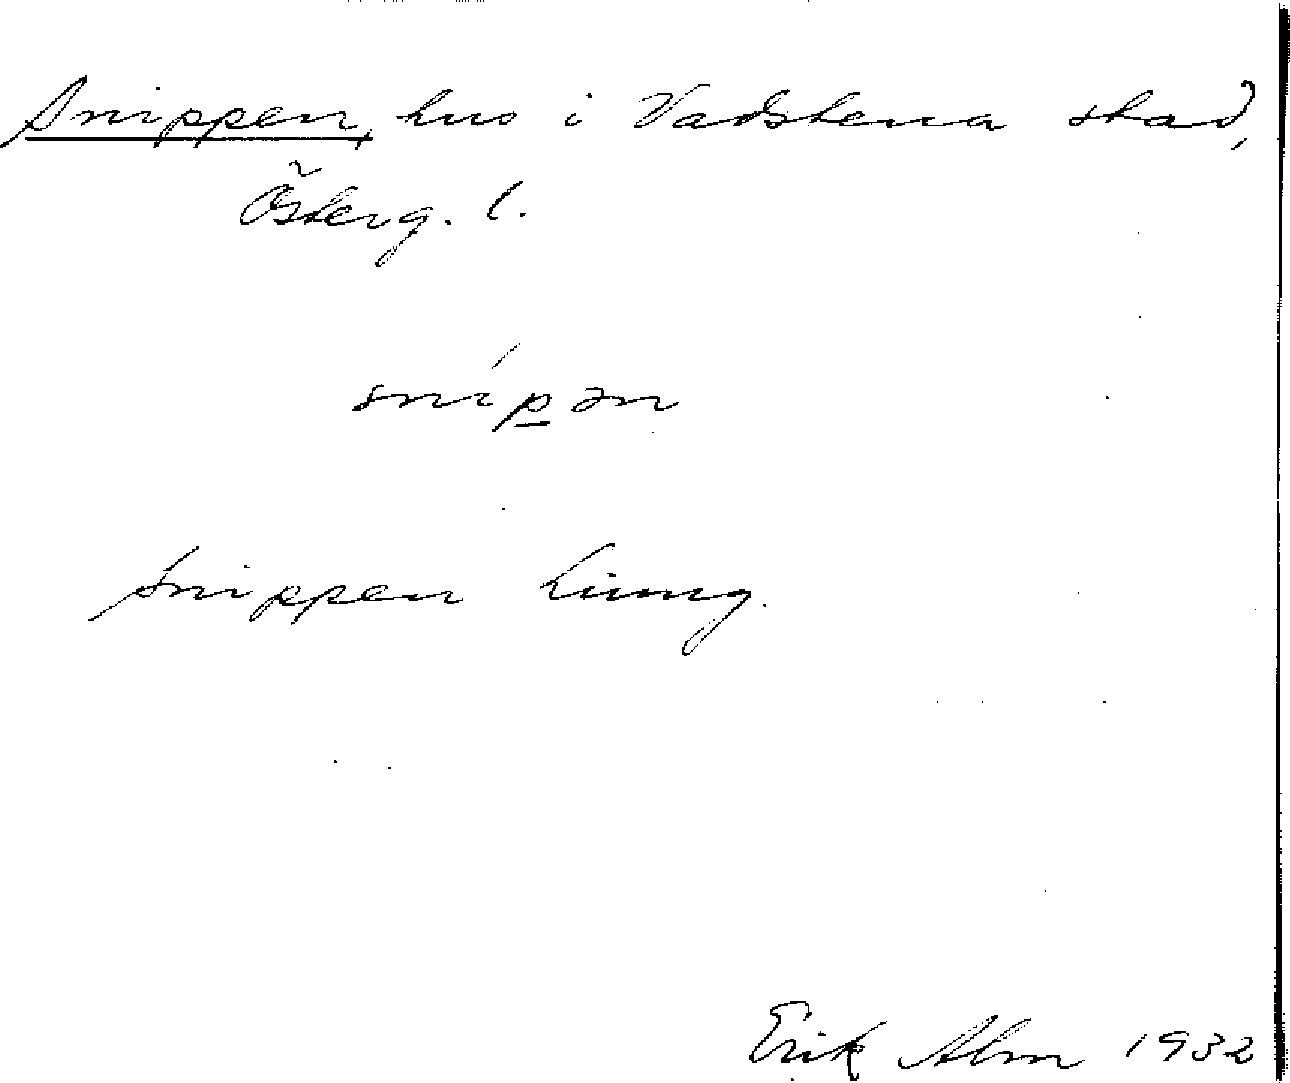 Snippen, hus i Vadstena stad,
Österg. l.
snip̲ən
Snippen Ljung.
Erik Alm 1932